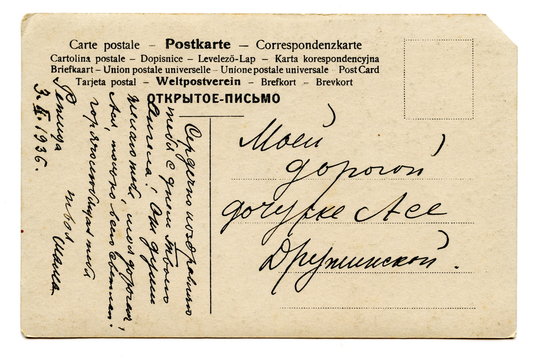 Carte postale – Postkarte – Correspondenzkarte
Cartolina postale – Dopisnice – Levelező-Lap – Karta korespondencyjna
Briefkaart - Union postale universelle - Unione postale universale Post Card
Tarjeta postal – Weltpostverein – Brefkort - Brevkort
ОТКРЫТОЕ-ПИСЬМО
Моей
дорогой
дочурке Асе
Дружинской.
Сердечно поздравляю
тебя с днем твоего
Ангела! От души
желаю тебе, моя дорогая
Ася, только всего
горячо любящая тебя
твоя мама
3.II.1936.